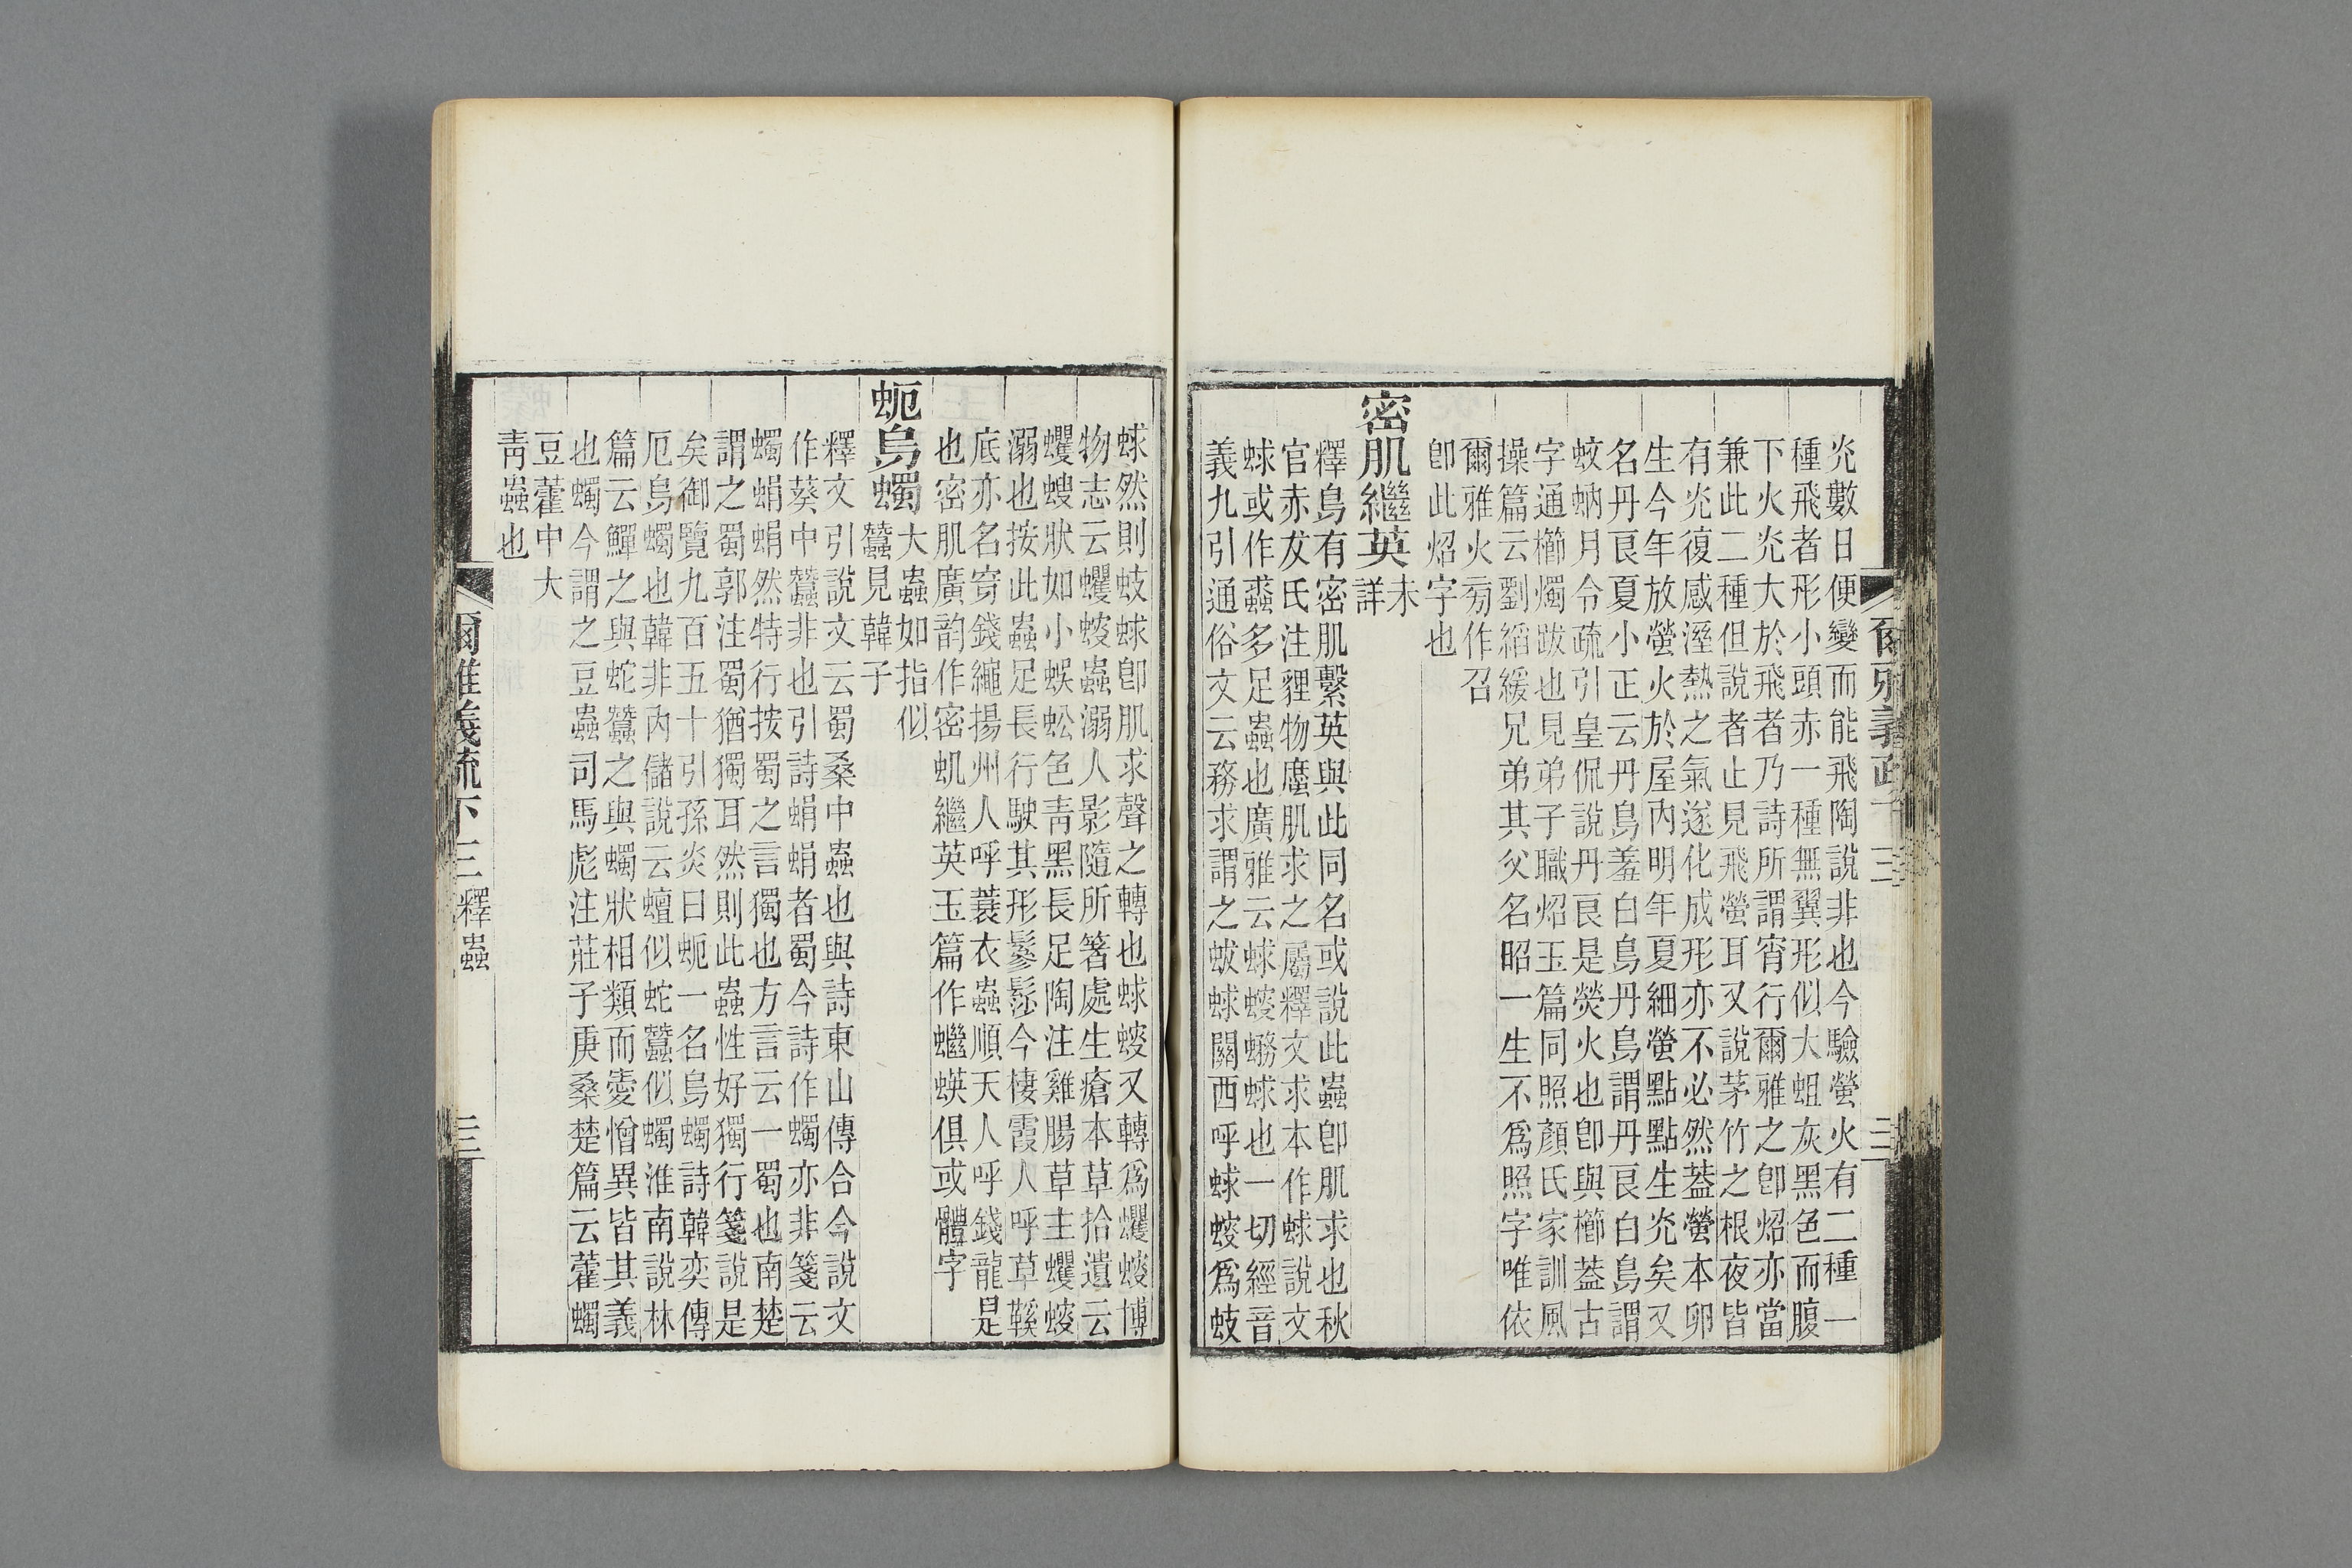 光數日便變而能飛陶說非也今驗螢火有二種一
種飛者形小頭赤一種無翼形似大蛆灰黑色而腹
下火光大於飛者乃詩所謂宵行爾雅之卽炤亦當
兼此二種但說者止見飛螢耳又說茅竹之根夜皆
有光復感溼熱之氣遂化成形亦不必然蓋螢本卵
生今年放螢火於屋內明年夏細螢點點生光矣又
名丹良夏小正云丹鳥羞白鳥丹鳥謂丹良白鳥謂
蚊蚋月令疏引皇侃說丹良是熒火也卽與櫛蓋古
字通櫛燭跋也見弟子職炤玉篇同照顏氏家訓風
操篇云劉縚緩兄弟其父名昭一生不爲照字唯依
爾雅火旁作召
卽此炤字也
密肌繼英
未
詳
釋鳥有密肌繫英與此同名或說此蟲卽肌求也秋
官赤犮氏注貍物𪊍肌求之屬釋文求本作蛷說文
蛷或作𧒒多足蟲也廣雅云蛷螋蟧蛷也一切經音
義九引通俗文云務求謂之蛂蛷關西呼蛷螋爲蚑
蛷然則蚑蛷卽肌求聲之轉也蛷螋又轉爲蠼螋博
物志云蠼螋蟲溺人影隨所箸處生瘡本草拾遺云
蠼螋狀如小蜈蚣色青黑長足陶注雞腸草主蠼螋
溺也按此蟲足長行駛其形鬖髿今棲霞人呼草鞵
底亦名穿錢繩揚州人呼蓑衣蟲順天人呼錢龍是
也密肌廣韵作密虮繼英玉篇作蠿蝧俱或體字
蚅烏蠋
大蟲如指似
蠶見韓子
釋文引說文云蜀桑中蟲也與詩東山傳合今說文
作葵中蠶非也引詩蜎蜎者蜀今詩作蠋亦非箋云
蠋蜎蜎然特行按蜀之言獨也方言云一蜀也南楚
謂之蜀郭注蜀猶獨耳然則此蟲性好獨行箋說是
矣御覽九百五十引孫炎曰蚅一名烏蠋詩韓奕傳
厄烏蠋也韓非內儲說云蟺似蛇蠶似蠋淮南說林
篇云鱓之與蛇蠶之與蠋狀相類而愛憎異皆其義
也蠋今謂之豆蟲司馬彪注莊子庚桑楚篇云藿蠋
豆藿中大
青蟲也
爾雅義疏下三 釋蟲